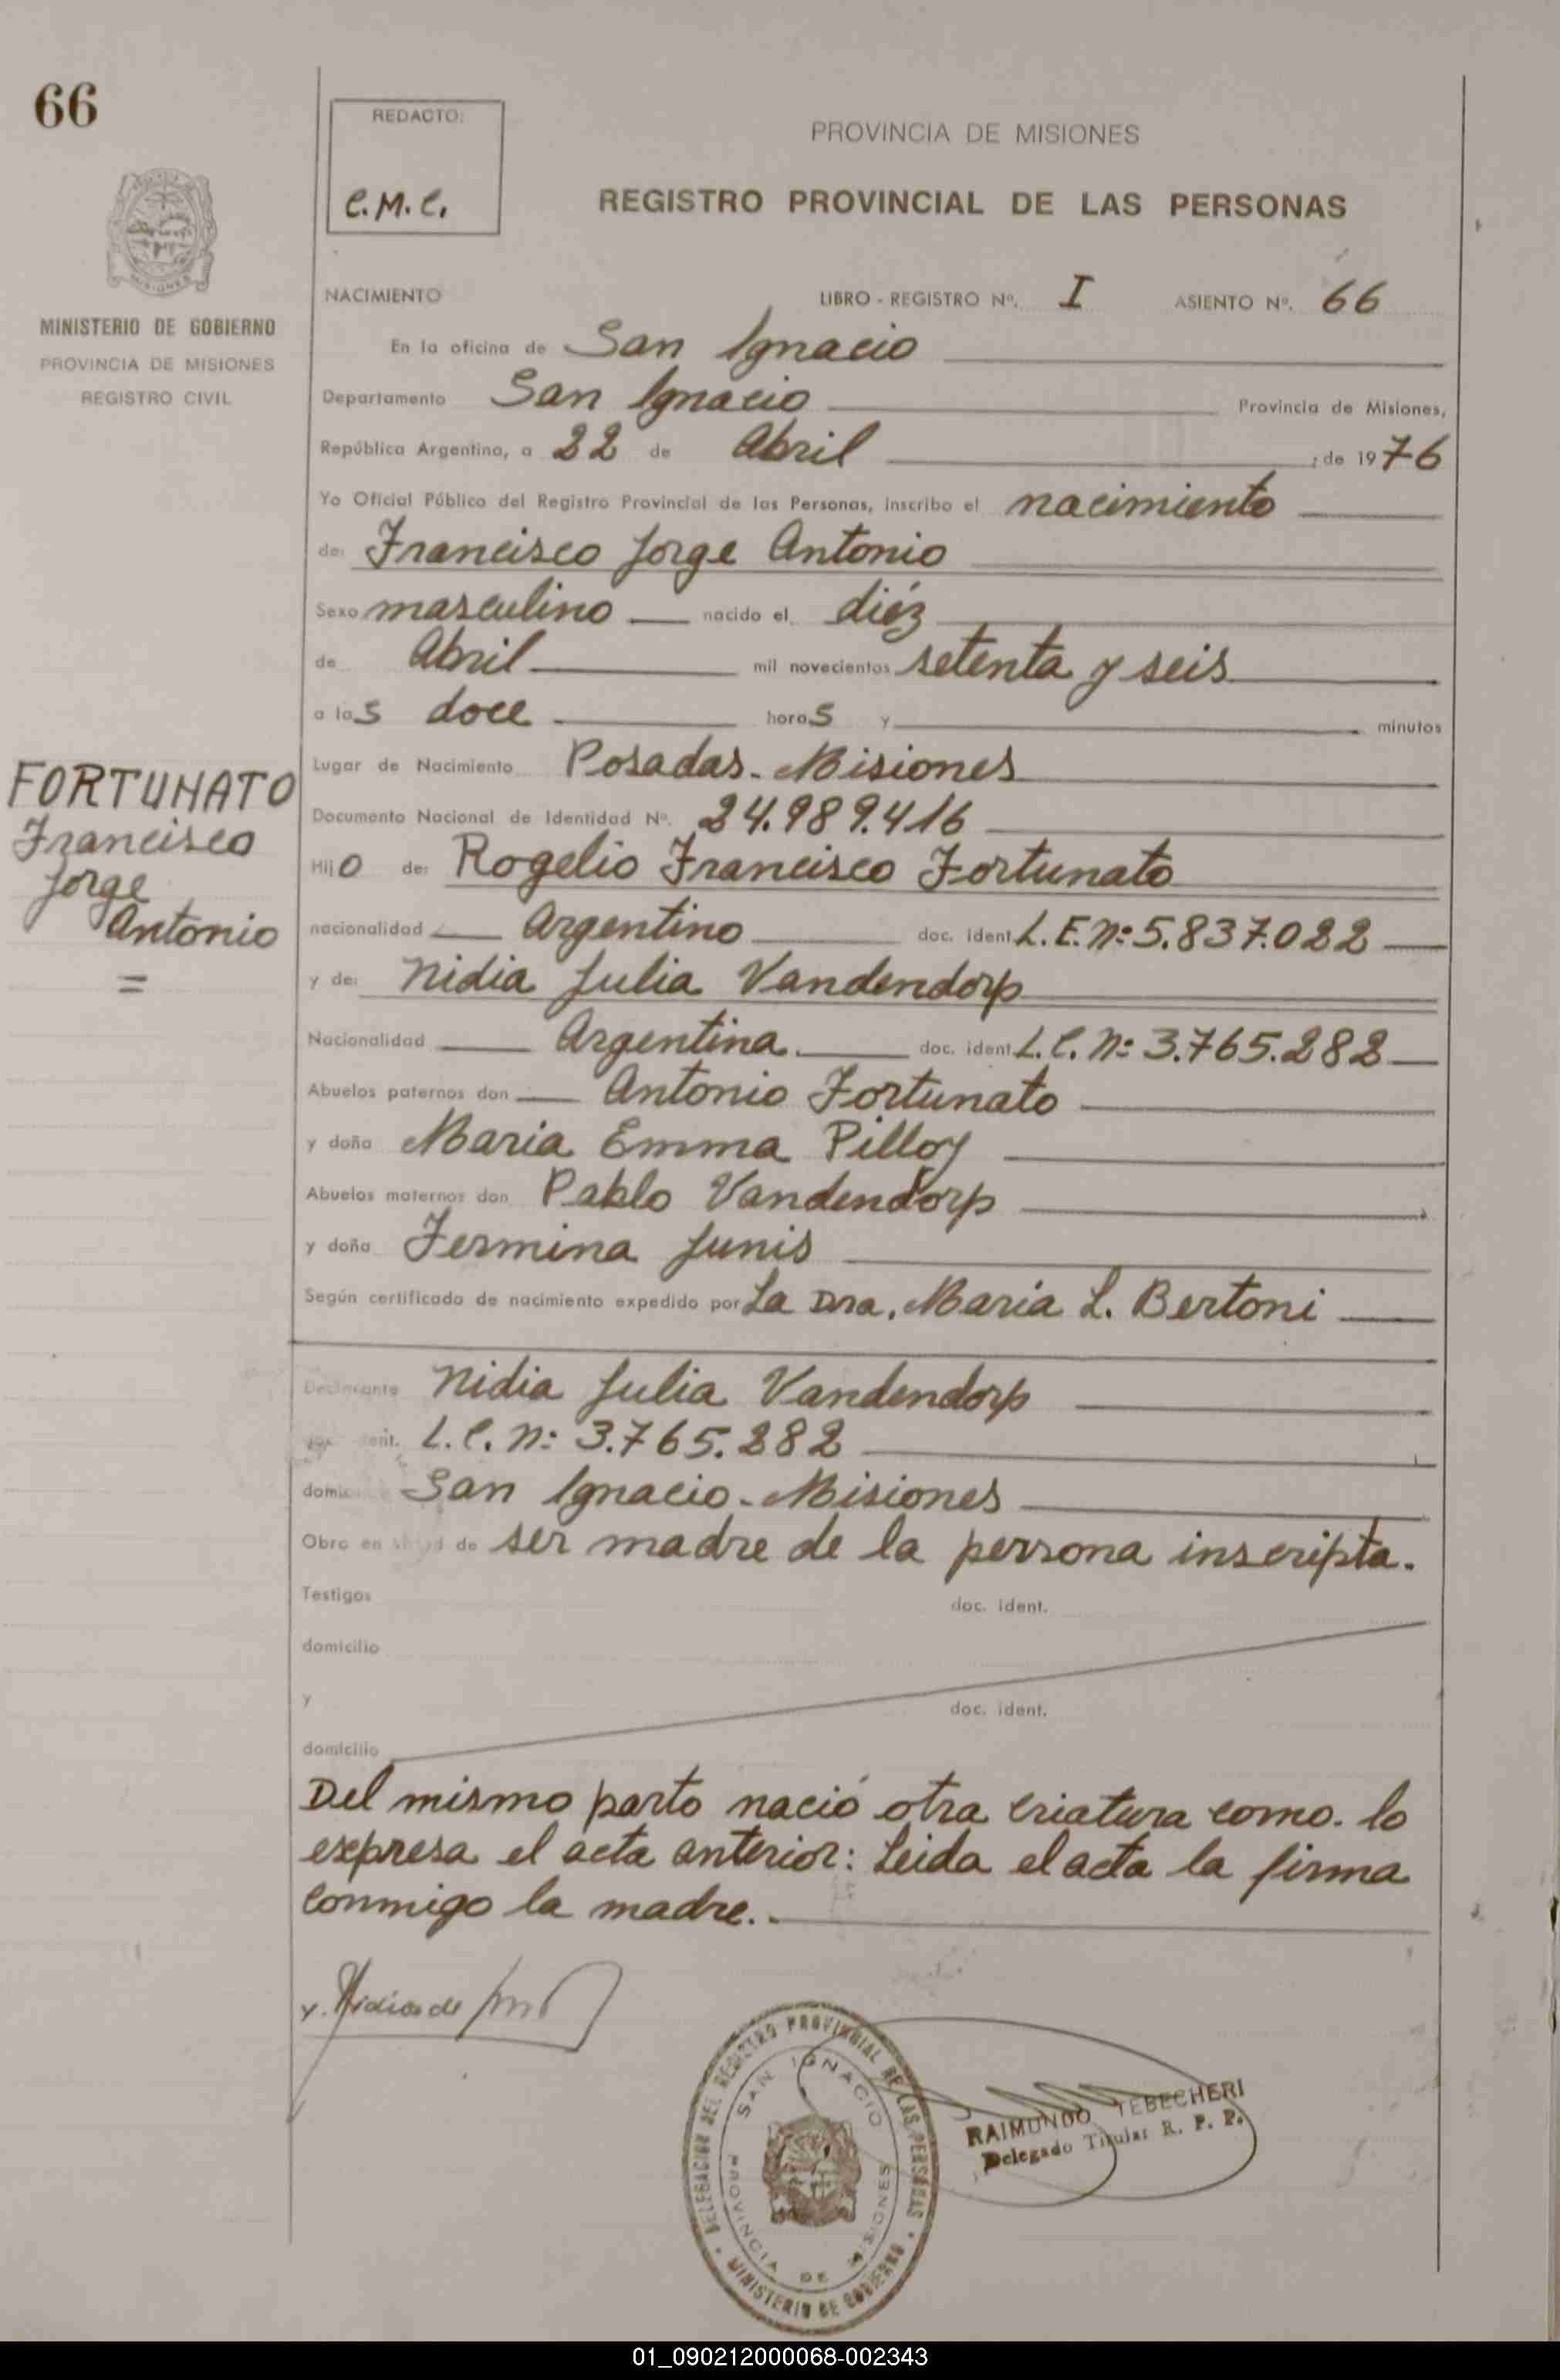 66
REDACTO:
C.M.C.
PROVINCIA DE MISIONES
REGISTRO PROVINCIAL DE LAS PERSONAS
MISIONES
MINISTERIO DE GOBIERNO
PROVINCIA DE MISIONES
REGISTRO CIVIL
NACIMIENTO LIBRO - REGISTRO Nº. I ASIENTO Nº. 66
En la oficina de San Ignacio
Departamento San Ignacio Provincia de Misiones,
República Argentina, a 22 de Abril ; de 1976
Yo Oficial Público del Registro Provincial de las Personas, inscribo el nacimiento
de: Francisco Jorge Antonio
Sexo masculino nacido el diéz
de Abril mil novecientos setenta y seis
a las doce horas y minutos
Lugar de Nacimiento Posadas - Misiones
FORTUNATO
Francisco
Jorge
Antonio
=
Documento Nacional de Identidad Nº. 24.989.416
Hijo de: Rogelio Francisco Fortunato
nacionalidad Argentino doc. ident. L.E.Nº 5.837.022
y de: Nidia Julia Vandendorp
Nacionalidad Argentina. doc. ident. L.C. Nº 3.765.282
Abuelos paternos don Antonio Fortunato
y doña Maria Emma Pilloy
Abuelos maternos don Pablo Vandendorp
y doña Fermina Junis
Según certificado de nacimiento expedido por La Dra. Maria L. Bertoni
Declarante Nidia Julia Vandendorp
doc. ident. L.C. Nº 3.765.282
domic San Ignacio - Misiones
Obra en de ser madre de la persona inscripta.
Testigos doc. ident.
domicilio
y doc. ident.
domicilio
Del mismo parto nació otra criatura como. lo
expresa el acta anterior: Leida el acta la firma
conmigo la madre..
Nidia de
DELEGACION DEL REGISTRO PROVINCIAL DE LAS PERSONAS
SAN IGNACIO
PROVINCIA DE MISIONES
MINISTERIO DE GOBIERNO
RAIMUNDO TEBECHERI
Delegado Titular R. P. P.
01_090212000068-002343